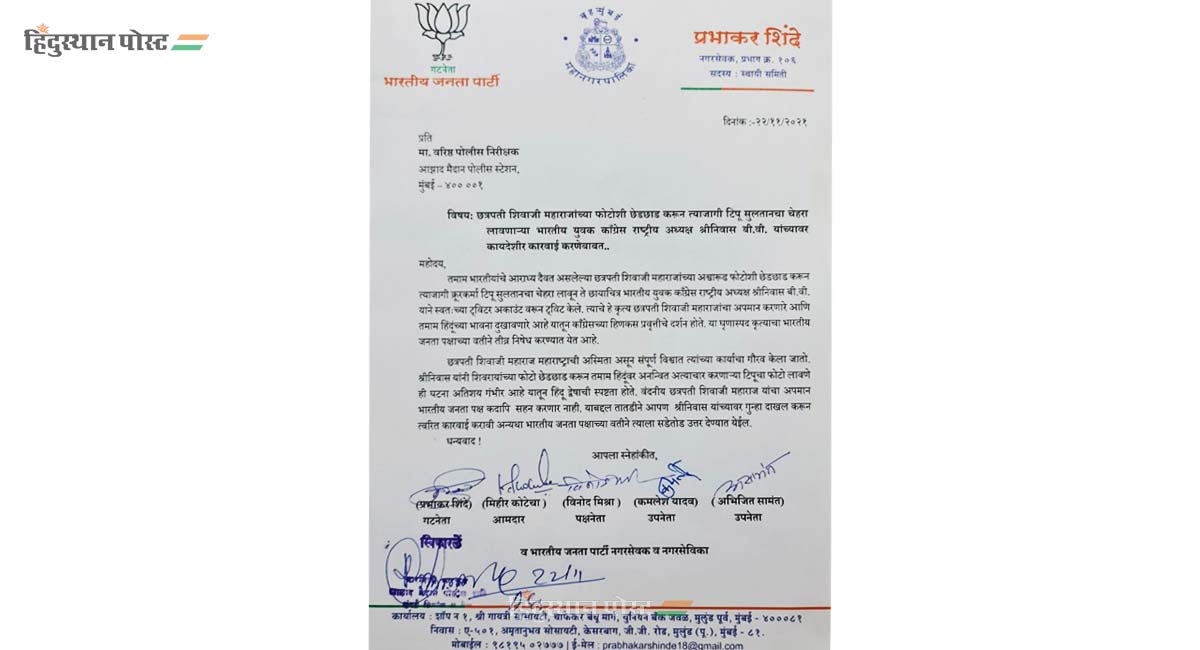 हिंदुस्थान पोस्ट
गटनेता
भारतीय जनता पार्टी
बृहन्मुंबई
महानगरपालिका
प्रभाकर शिंदे
नगरसेवक, प्रभाग क्र. १०६
सदस्य : स्थायी समिती
दिनांक :-२२/११/२०२१
प्रति
मा. वरिष्ठ पोलीस निरीक्षक
आझाद मैदान पोलीस स्टेशन,
मुंबई – ४०० ००१
विषय: छत्रपती शिवाजी महाराजांच्या फोटोशी छेडछाड करून त्याजागी टिपू सुलतानचा चेहरा
लावणाऱ्या भारतीय युवक काँग्रेस राष्ट्रीय अध्यक्ष श्रीनिवास बी.वी. यांच्यावर
कायदेशीर कारवाई करणेबाबत..
महोदय,
तमाम भारतीयांचे आराध्य दैवत असलेल्या छत्रपती शिवाजी महाराजांच्या अश्वारूढ फोटोशी छेडछाड करून
त्याजागी क्रूरकर्मा टिपू सुलतानचा चेहरा लावून ते छायाचित्र भारतीय युवक काँग्रेस राष्ट्रीय अध्यक्ष श्रीनिवास बी.वी.
याने स्वतःच्या ट्विटर अकाउंट वरून ट्विट केले. त्याचे हे कृत्य छत्रपती शिवाजी महाराजांचा अपमान करणारे आणि
तमाम हिंदूंच्या भावना दुखावणारे आहे यातून काँग्रेसच्या हिणकस प्रवृत्तीचे दर्शन होते. या घृणास्पद कृत्याचा भारतीय
जनता पक्षाच्या वतीने तीव्र निषेध करण्यात येत आहे.
छत्रपती शिवाजी महाराज महाराष्ट्राची अस्मिता असून संपूर्ण विश्वात त्यांच्या कार्याचा गौरव केला जातो.
श्रीनिवास यांनी शिवरायांच्या फोटो छेडछाड करून तमाम हिंदूंवर अनन्वित अत्याचार करणाऱ्या टिपूचा फोटो लावणे
ही घटना अतिशय गंभीर आहे यातून हिंदू द्वेषाची स्पष्टता होते. वंदनीय छत्रपती शिवाजी महाराज यांचा अपमान
भारतीय जनता पक्ष कदापि सहन करणार नाही. याबद्दल तातडीने आपण श्रीनिवास यांच्यावर गुन्हा दाखल करून
त्वरित कारवाई करावी अन्यथा भारतीय जनता पक्षाच्या वतीने त्याला सडेतोड उत्तर देण्यात येईल.
धन्यवाद !
आपला स्नेहांकीत,
(प्रभाकर शिंदे) (मिहीर कोटेचा) (विनोद मिश्रा) (कमलेश यादव) (अभिजित सामंत)
गटनेता आमदार पक्षनेता उपनेता उपनेता
व भारतीय जनता पार्टी नगरसेवक व नगरसेविका
22/11
हिंदुस्थान पोस्ट
कार्यालय : शॉप न १, श्री गायत्री सोसायटी, चाफेकर बंधू मार्ग, युनियन बँक जवळ, मुलुंड पूर्व, मुंबई - ४०००८१
निवास : ए-५०१, अमृतानुभव सोसायटी, केसरबाग, जी.जी. रोड, मुलुंड (पू.), मुंबई - ८१.
मोबाईल : ९८१९५ ०२७७७ | ई-मेल : prabhakarshinde18@gmail.com